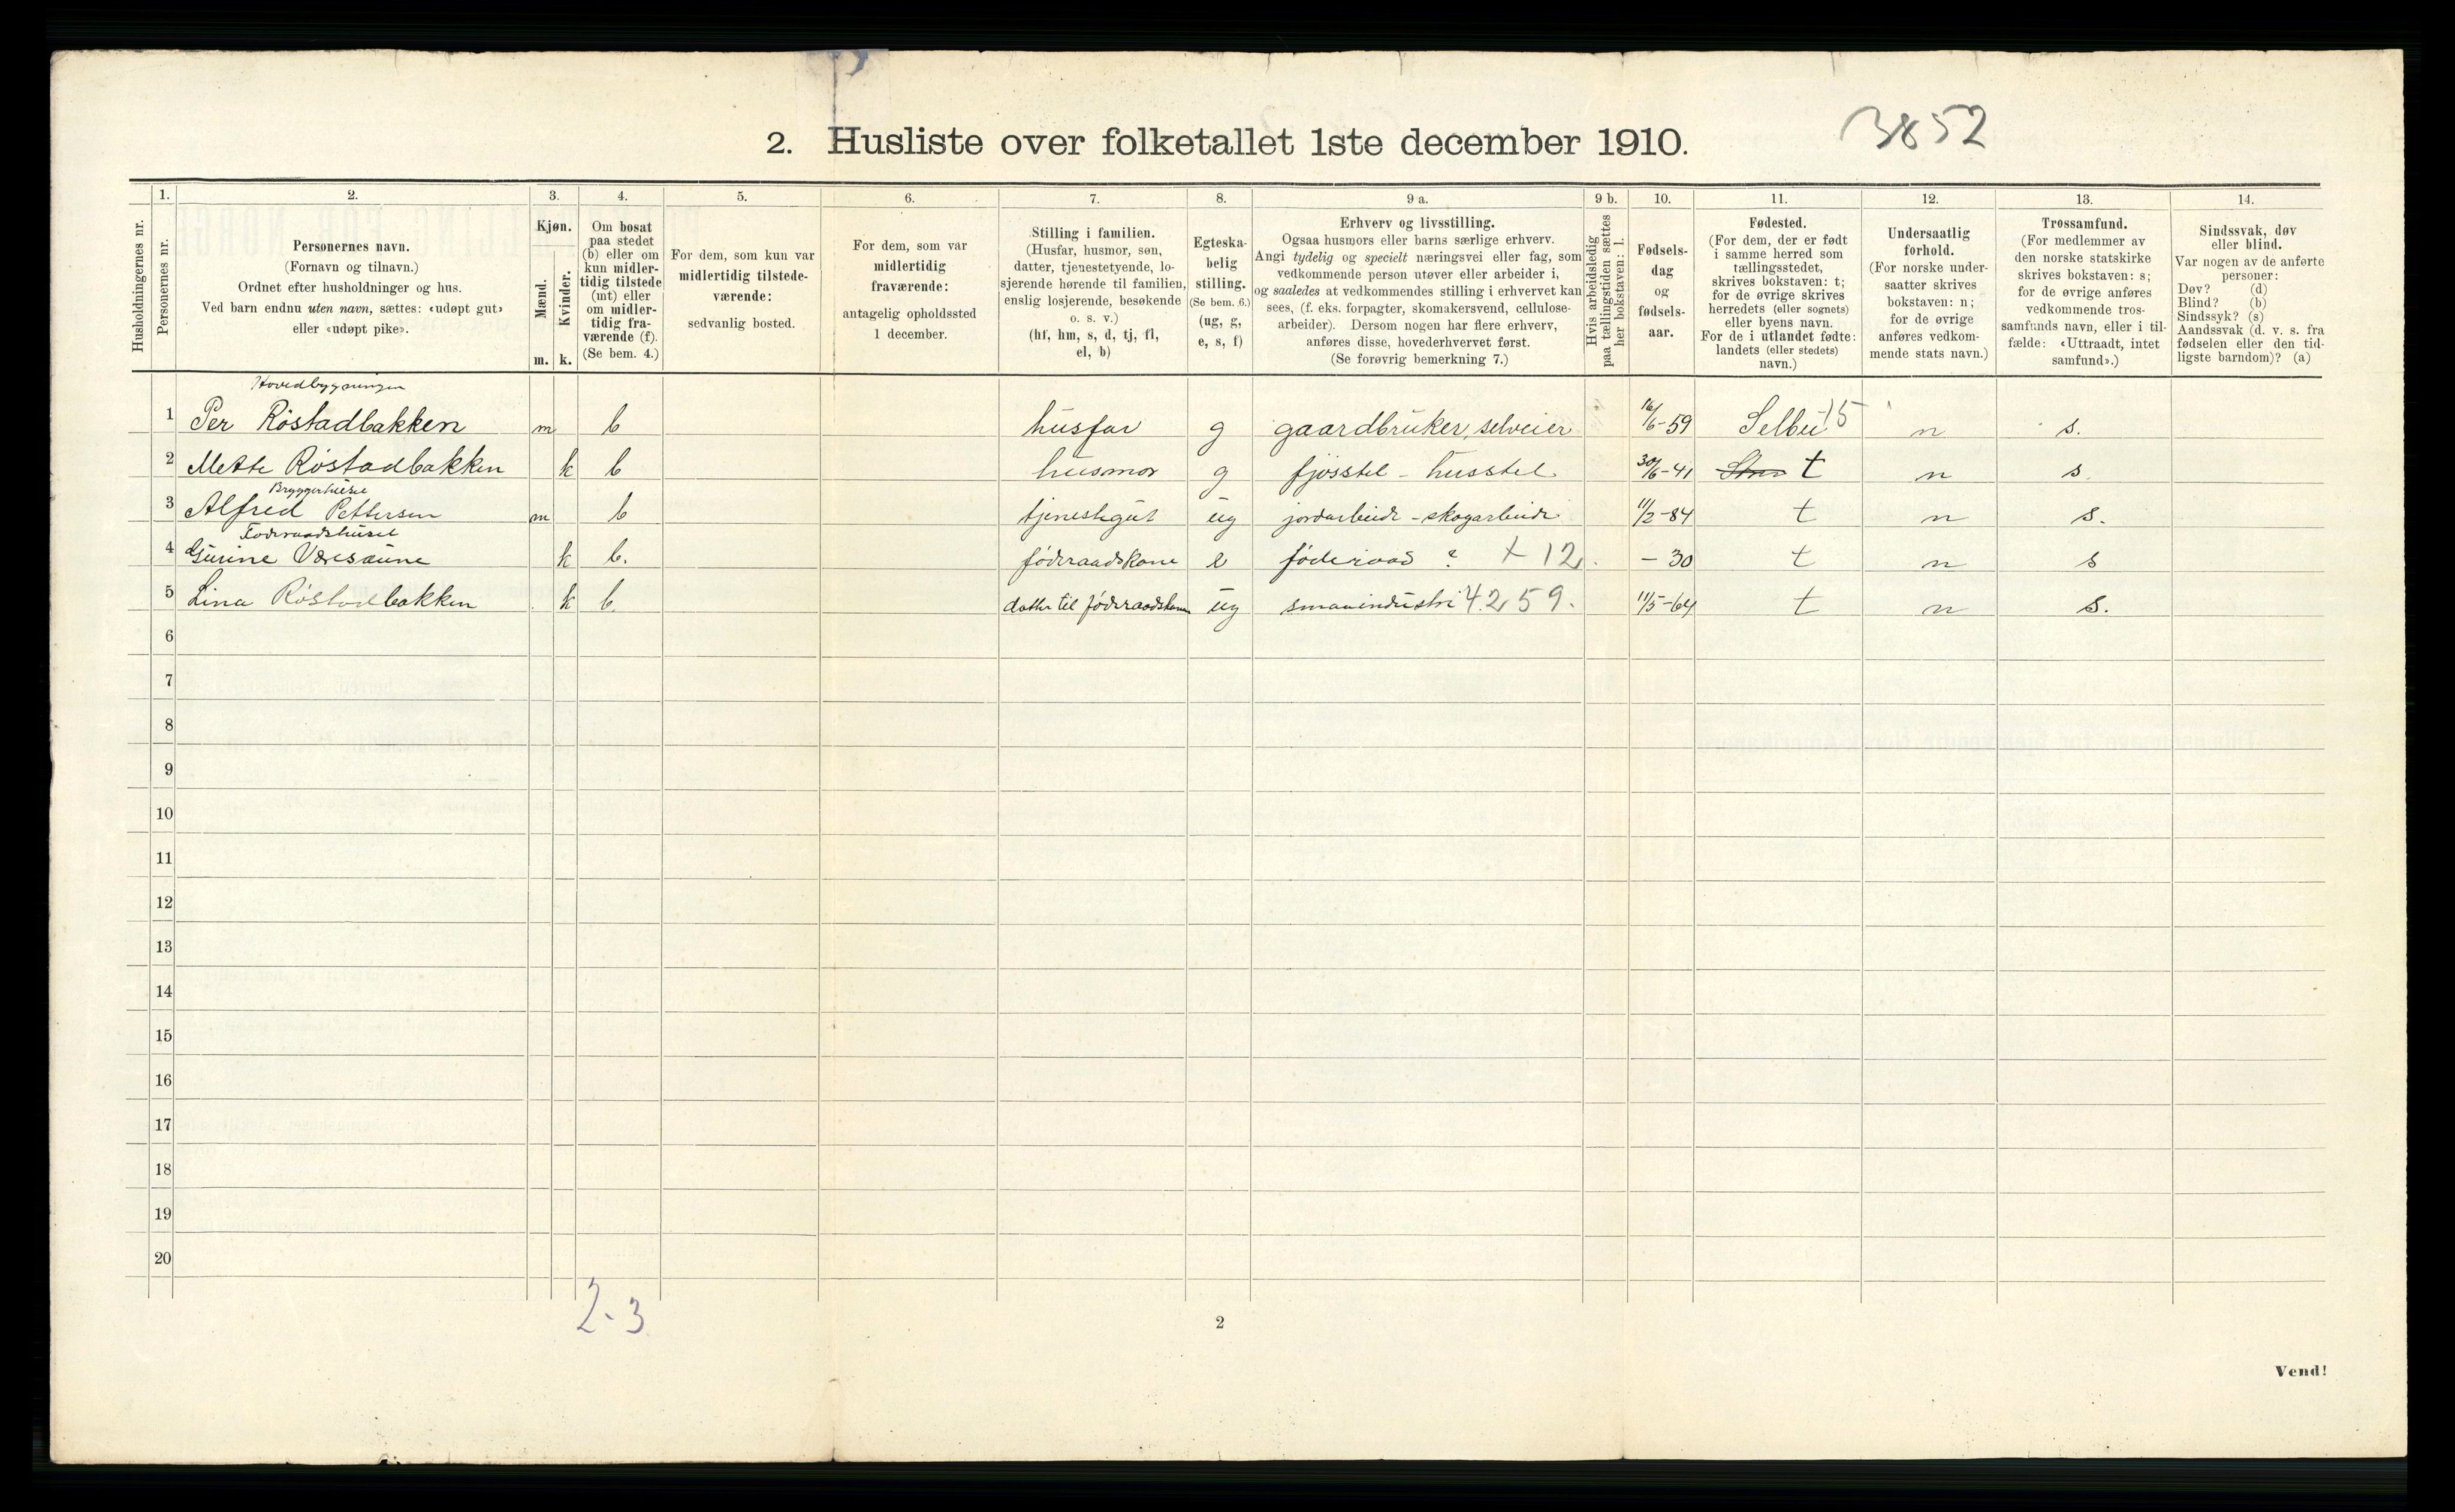 3852
2. Husliste over folketallet 1ste december 1910.
Husholdningernes nr.
1.
Personernes nr.
2.
Personernes navn.
(Fornavn og tilnavn.)
Ordnet efter husholdninger og hus.
Ved barn endnu uten navn, sættes: «udøpt gut»
eller «udøpt pike».
3.
Kjøn.
Mænd.
Kvinder.
m. k.
4.
Om bosat
paa stedet
(b) eller om
kun midler-
tidig tilstede
(mt) eller
om midler-
tidig fra-
værende (f).
(Se bem. 4.)
5.
For dem, som kun var
midlertidig tilstede-
værende:
sedvanlig bosted.
6.
For dem, som var
midlertidig
fraværende:
antagelig opholdssted
1 december.
7.
Stilling i familien.
(Husfar, husmor, søn,
datter, tjenestetyende, lo-
sjerende hørende til familien,
enslig losjerende, besøkende
o. s. v.)
(hf, hm, s, d, tj, fl,
el, b)
8.
Egteska-
belig
stilling.
(Se bem. 6.)
(ug, g,
e, s, f)
9 a.
Erhverv og livsstilling.
Ogsaa husmors eller barns særlige erhverv.
Angi tydelig og specielt næringsvei eller fag, som
vedkommende person utøver eller arbeider i,
og saaledes at vedkommendes stilling i erhvervet kan
sees, (f. eks. forpagter, skomakersvend, cellulose-
arbeider). Dersom nogen har flere erhverv,
anføres disse, hovederhvervet først.
(Se forøvrig bemerkning 7.)
9 b.
Hvis arbeidsledig
paa tællingstiden sættes
her bokstaven: l.
10.
Fødsels-
dag
og
fødsels-
aar.
11.
Fødested.
(For dem, der er født
i samme herred som
tællingsstedet,
skrives bokstaven: t;
for de øvrige skrives
herredets (eller sognets)
eller byens navn.
For de i utlandet fødte:
landets (eller stedets)
navn.)
12.
Undersaatlig
forhold.
(For norske under-
saatter skrives
bokstaven: n;
for de øvrige
anføres vedkom-
mende stats navn.)
13.
Trossamfund.
(For medlemmer av
den norske statskirke
skrives bokstaven: s;
for de øvrige anføres
vedkommende tros-
samfunds navn, eller i til-
fælde: «Uttraadt, intet
samfund».)
14.
Sindssvak, døv
eller blind.
Var nogen av de anførte
personer:
Døv? (d)
Blind? (b)
Sindssyk? (s)
Aandssvak (d. v. s. fra
fødselen eller den tid-
ligste barndom)? (a)
Hovedbygningen
1 Per Röstadbakken m b husfar g gaardbruker, selveier 16/6-59 Selbu 15 n s.
2 Mette Röstadbakken k b husmor g fjösstel - husstel 30/6-41 t n s.
Bryggerhuset
3 Alfred Pettersen m b tjenestegut ug jordarbeide - skogarbeide 11/2-84 t n s.
Föderaadshuset
4 Gurine Væresaune k b. föderaadskone e föderaad ? + 12 - 30 t n s
5 Lina Röstadbakken k b. datter til föderaadskonen ug smaaindustri 4.259. 11/5-64 t n s.
6
7
8
9
10
11
12
13
14
15
16
17
18
19
20
2-3
2
Vend!